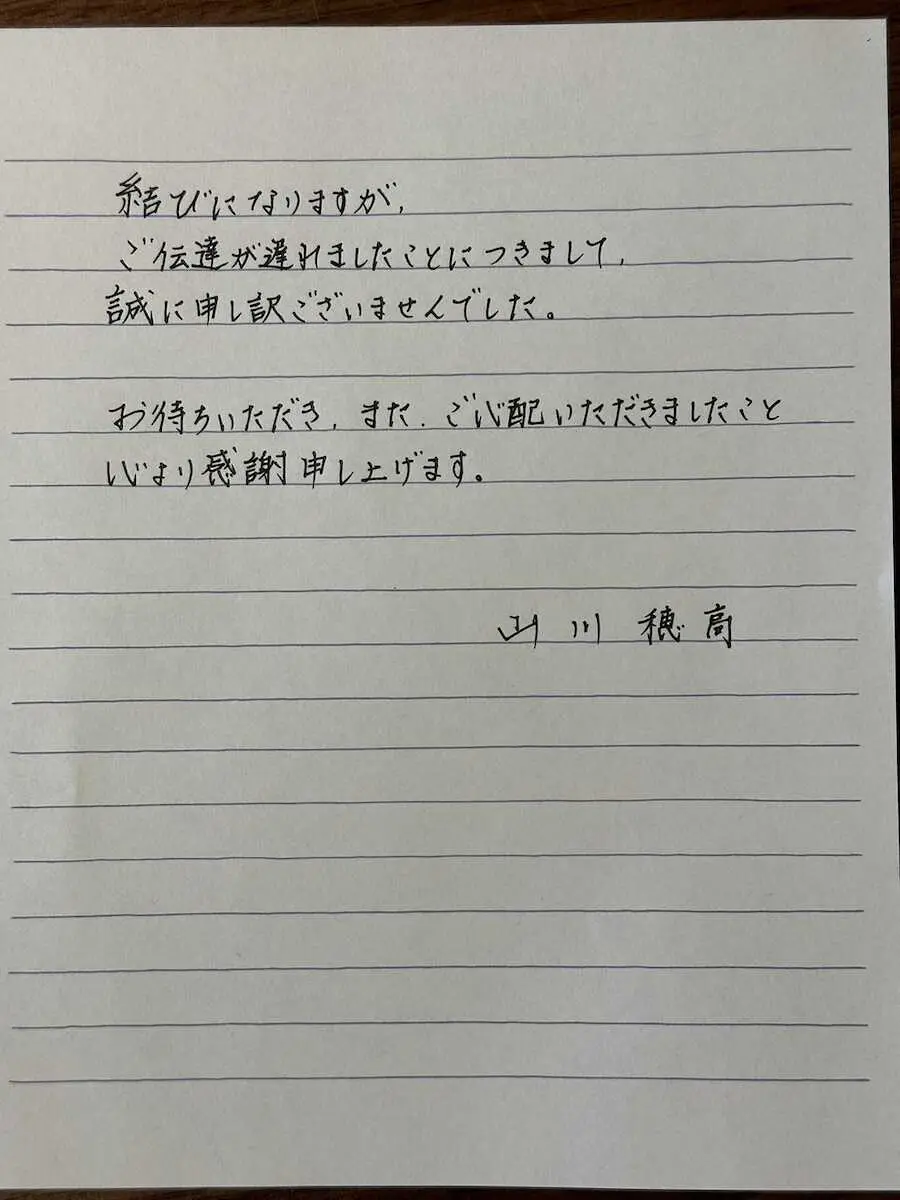 結びになりますが、
ご伝達が遅れましたことにつきまして、
誠に申し訳ございませんでした。
お待ちいただき、また、ご心配いただきましたこと
心より感謝申し上げます。
山川穂高